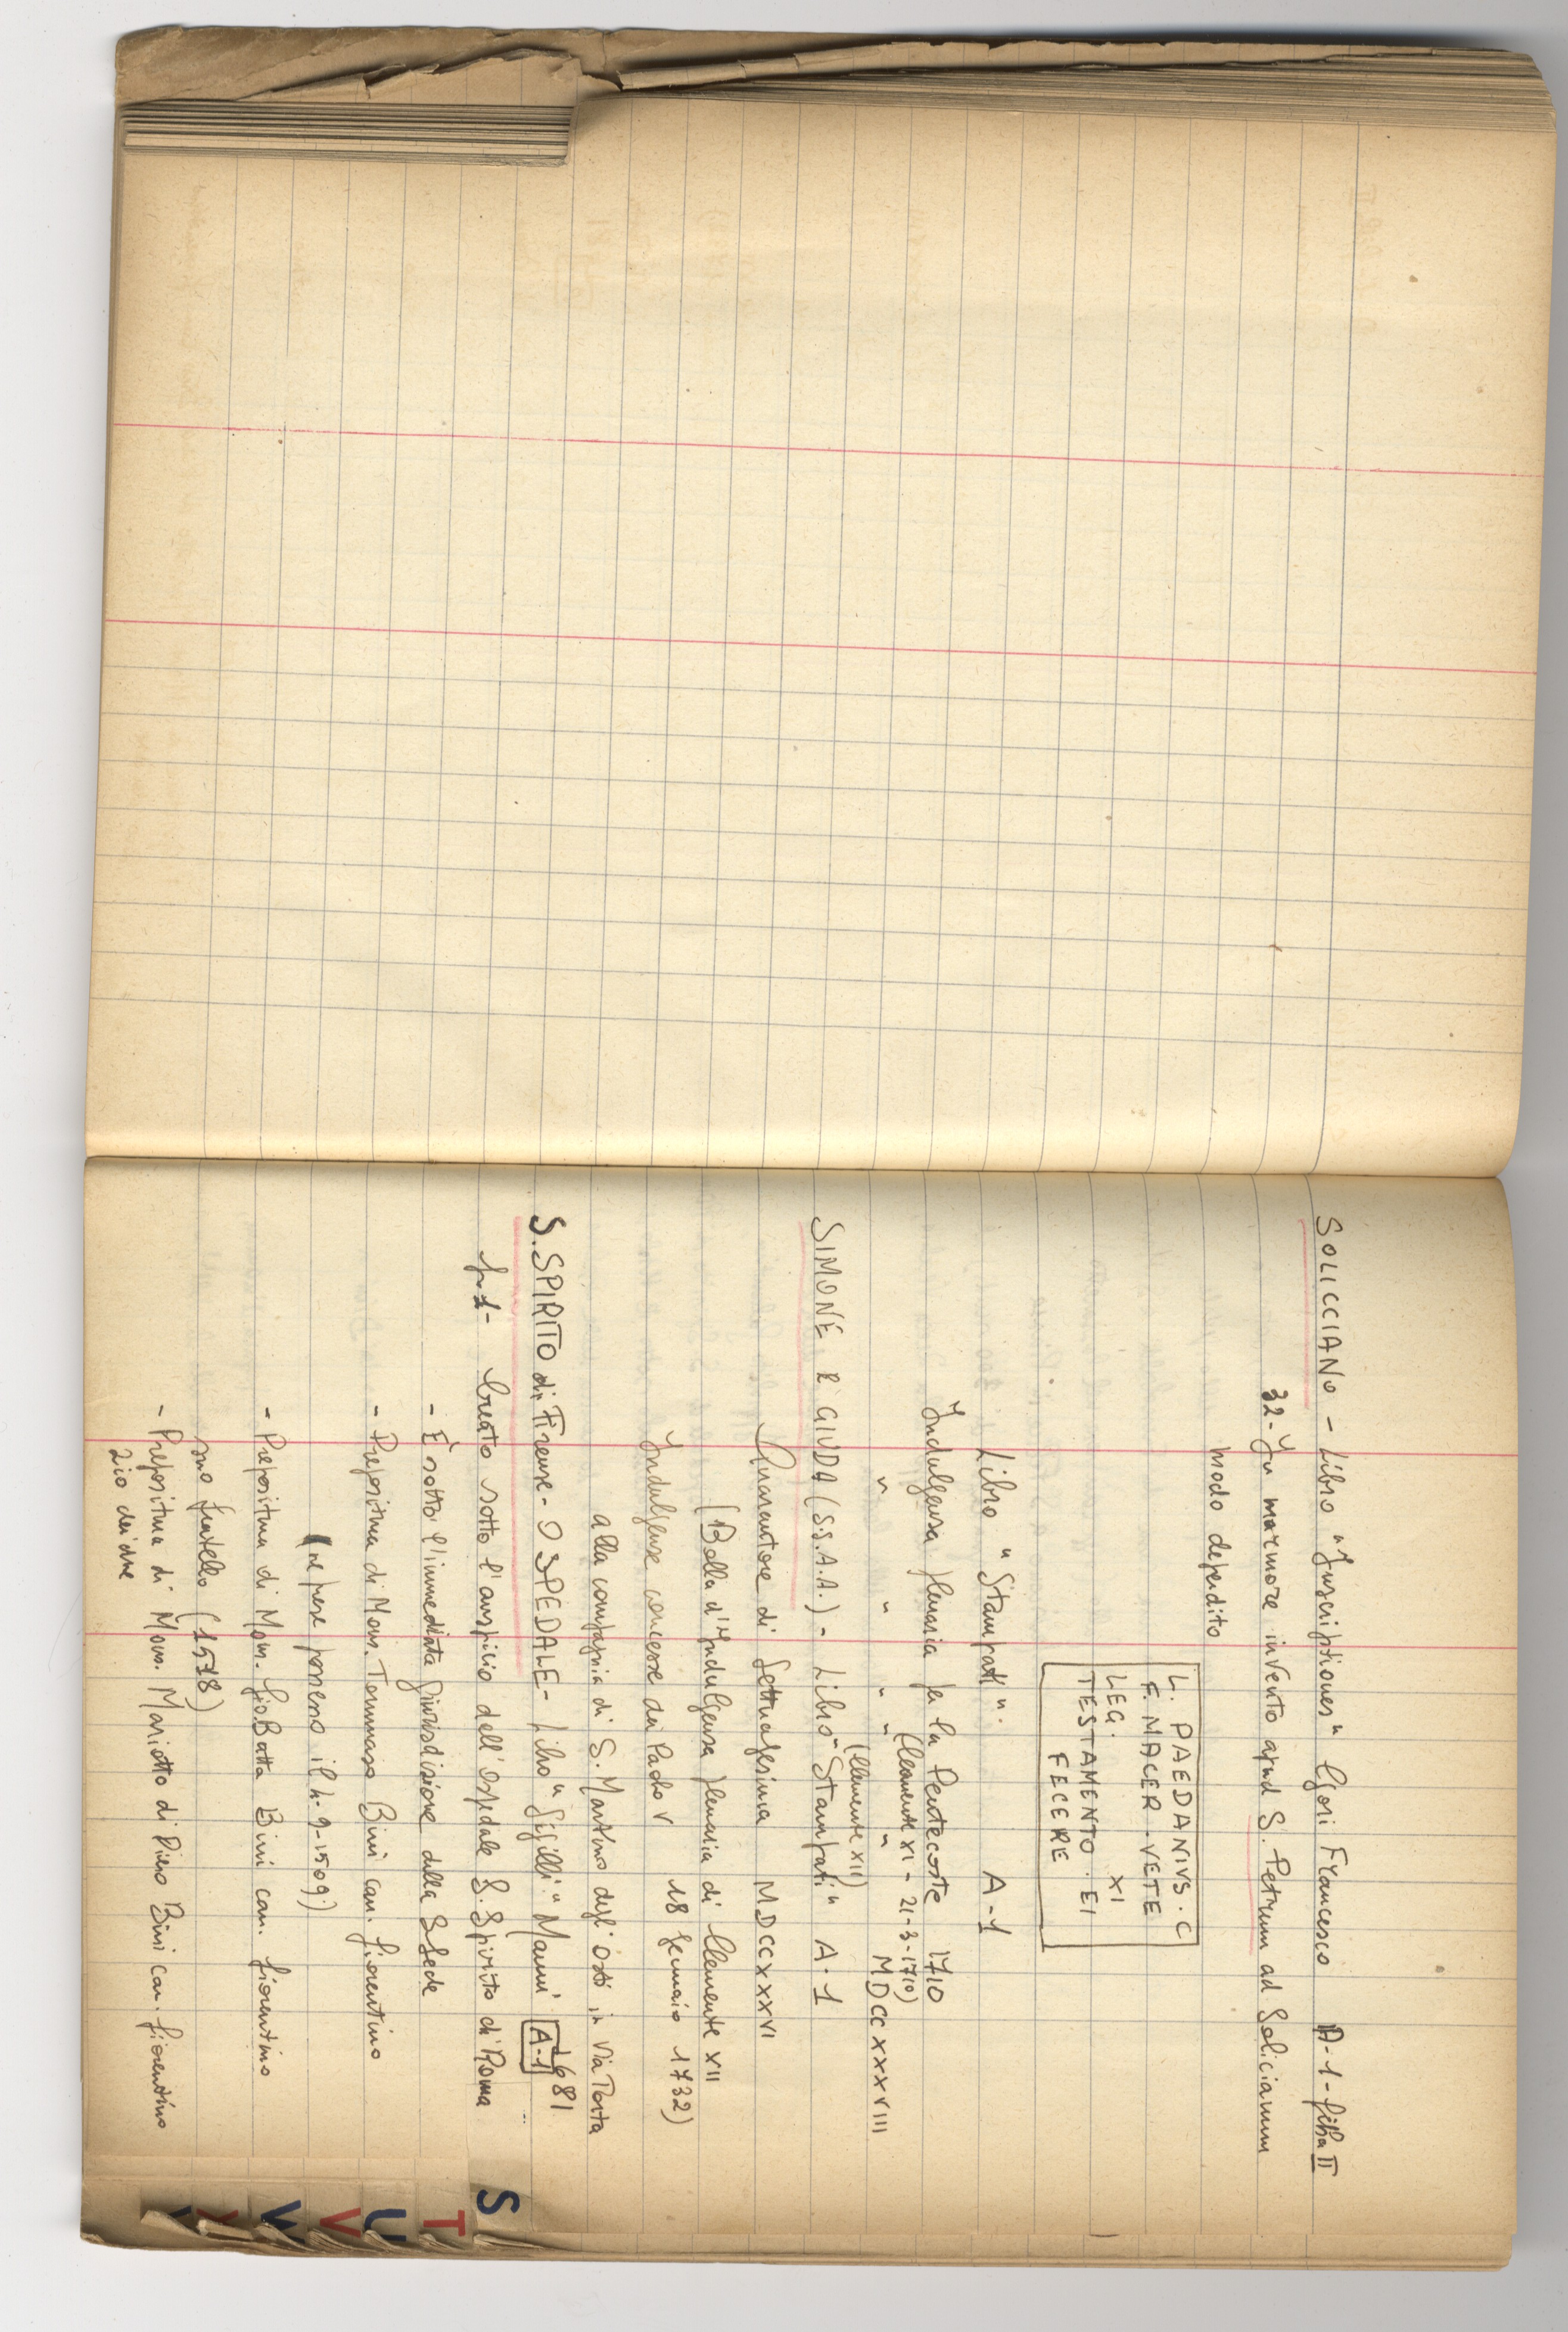 SOLICCIANO - Libro "Inscriptiones" Gori Francesco A-1-fila II
32- In marmore invento apud S. Petrum ad Solicianum
modo deperdito
L. PAEDANIVS. C
F. MACER. VETE
LEG. XI
TESTAMENTO. EI
FECERE
Libro "Stampati". A-1
Indulgenza plenaria per la Pentecoste 1710
(Clemente XI - 21-3-1710)
" " " " " MDCCXXXVIII
(Clemente XII)
SIMONE E GIUDA (S.S.A.A.) - Libro "Stampati" A-1
Quarantore di Settuagesima MDCCXXXVI
(Bolla d'Indulgenza plenaria di Clemente XII
18 gennaio 1732)
Indulgenze concesse da Paolo V
alla compagnia di S. Martino degl'Osti in Via Porta
S. SPIRITO di Firenze - OSPEDALE - Libro "Sigilli" Manni A-1 1681
p. 1- Creato sotto l'auspicio dell'Ospedale S. Spirito di Roma
- È sotto l'immediata giurisdizione della S Sede
- Prepositura di Mons. Tommaso Bini can. fiorentino
(ne prese possesso il 4-9-1509)
- Prepositura di Mons. Gio. Batta Bini can. fiorentino
suo fratello (1578)
- Prepositura di Mons. Mariotto di Piero Bini can. fiorentino
zio dei due
S
T
U
V
W
X